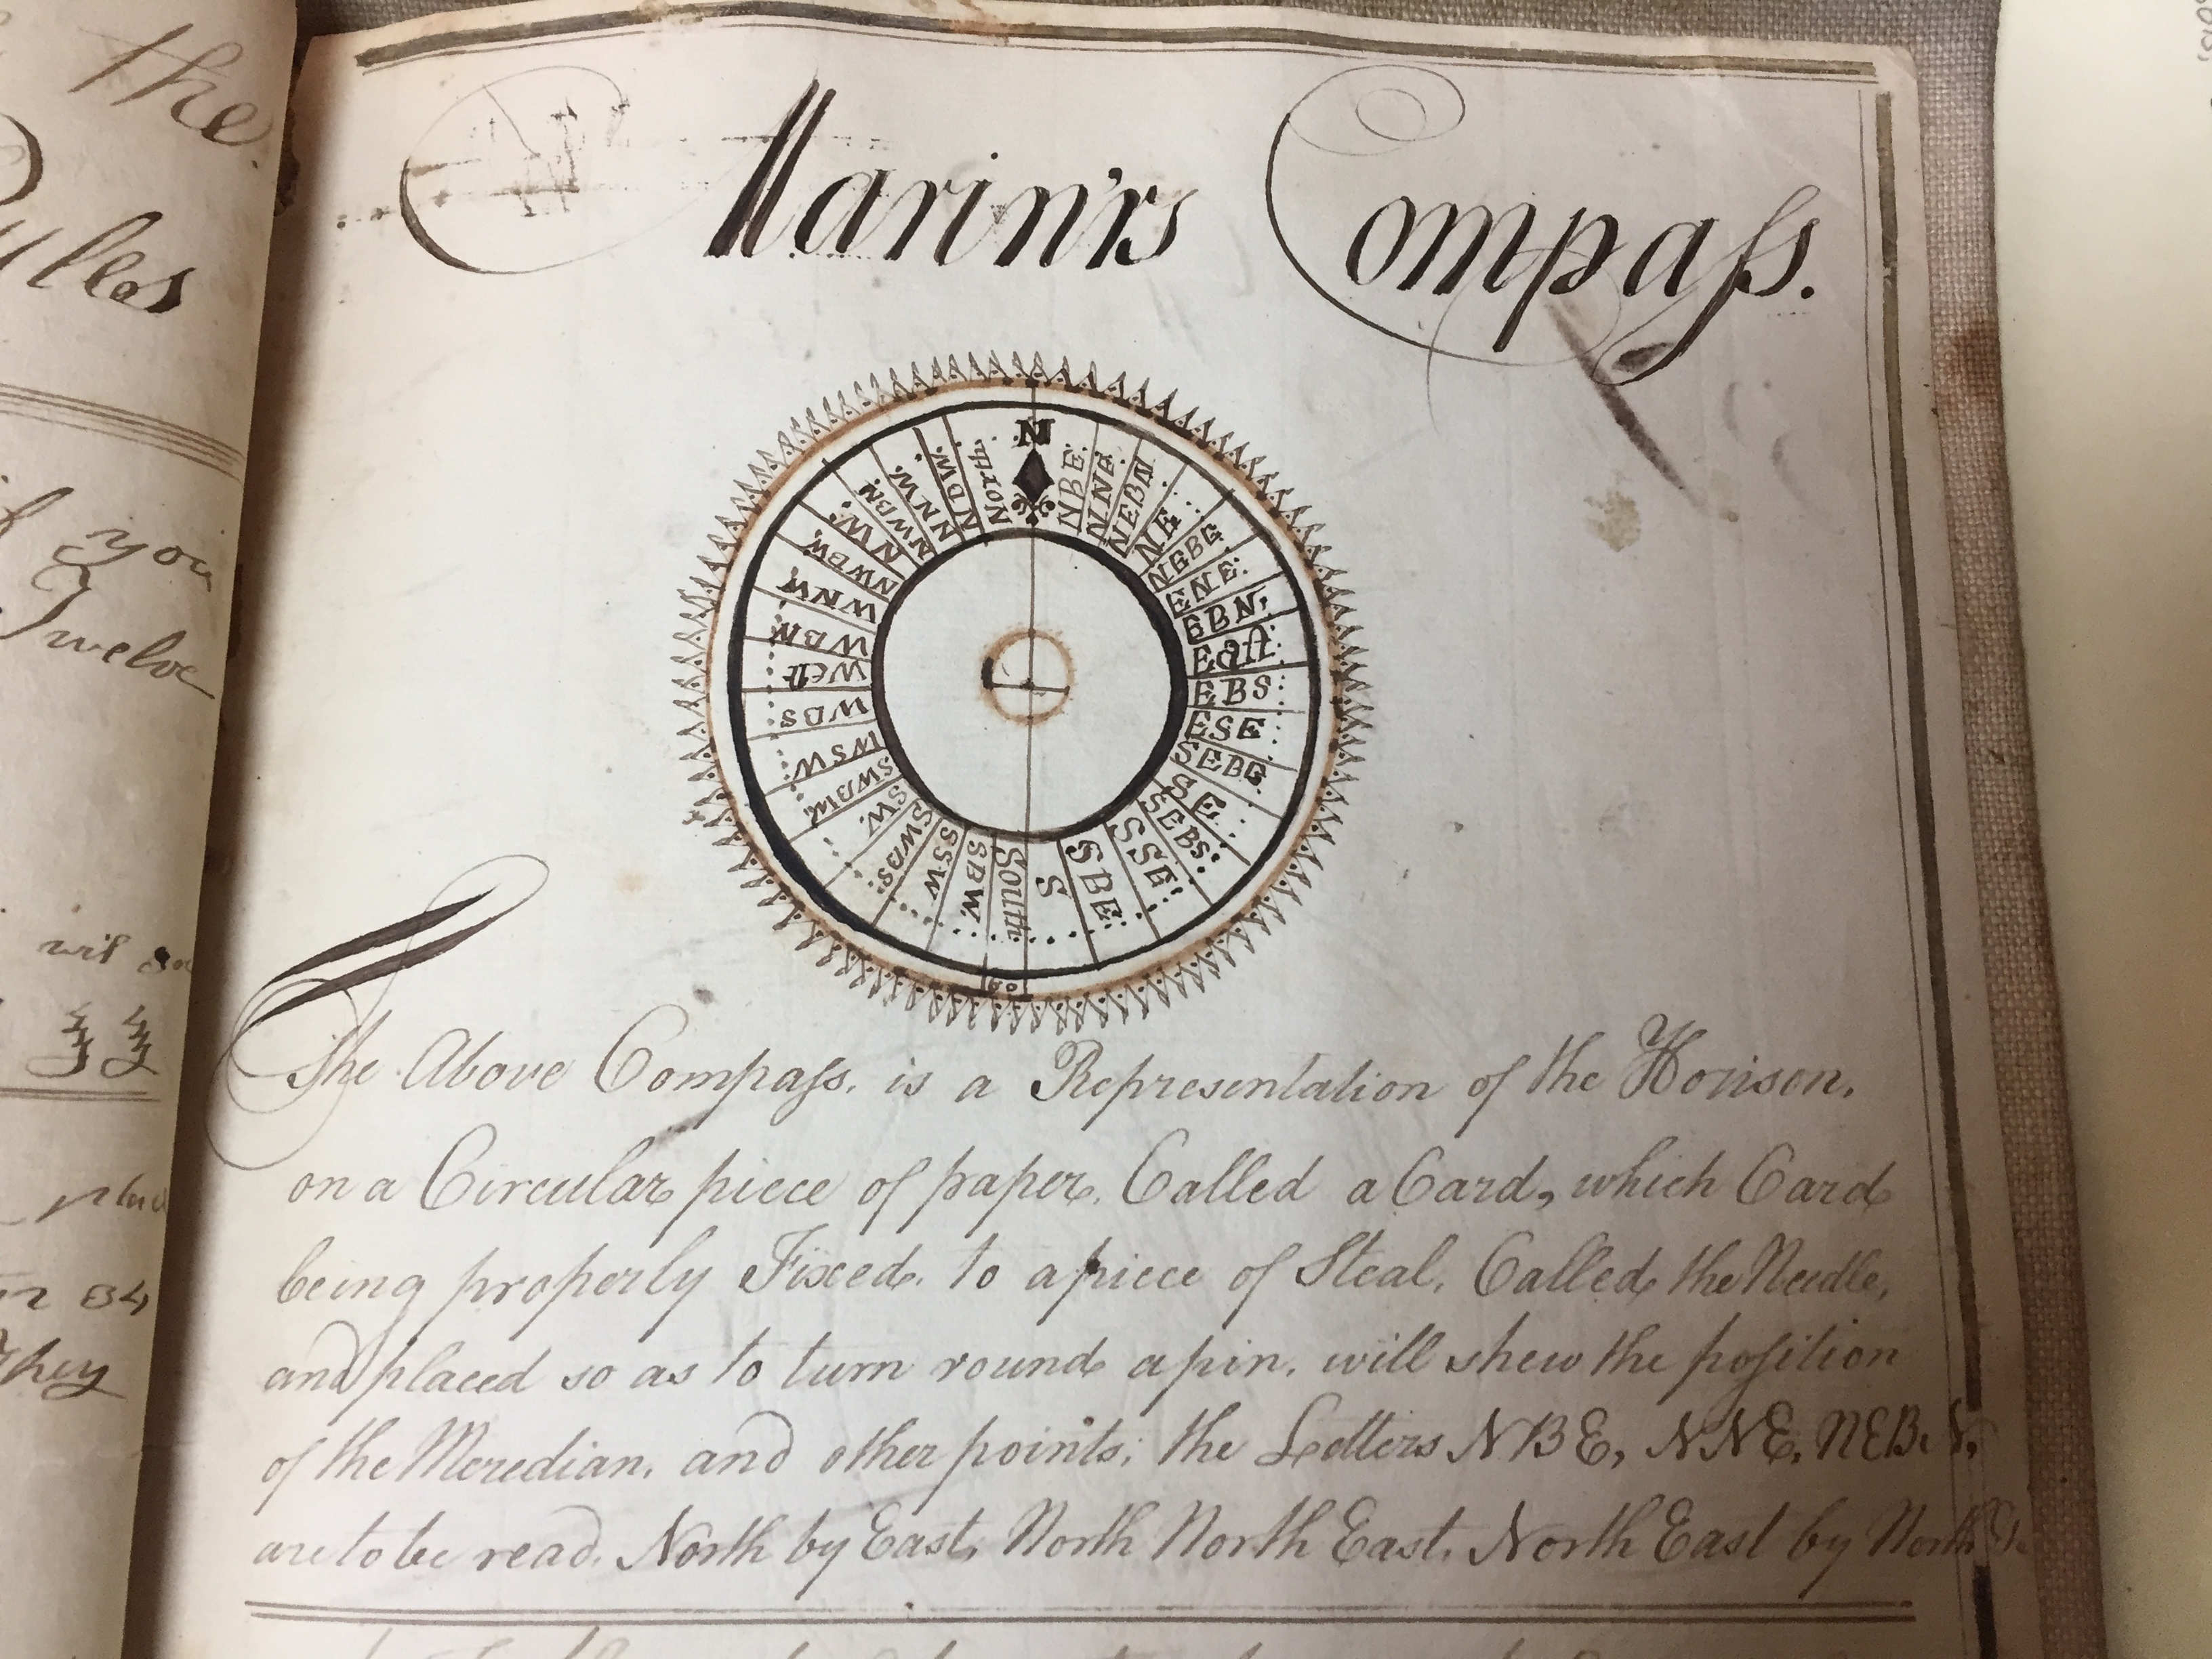 the
Rules
you
Twelve
they
Marin'rs Compaſs.
N
North.
NBE.
NNE.
NEBN
NE
NEBE
ENE.
EBN.
East.
EBS
ESE
SEBE
SE
SEBS
SSE
SBE
S
South
SBW.
SSW
SWBS
SW.
SWBW.
WSW
WBS
West
WBN
WNW
NWBW.
NW.
NWBN.
NNW.
NBW.
The Above Compaſs. is a Representation of the Horison.
on a Circular piece of paper. Called a Card, which Card
being properly Fixed. to a piece of Steal. Called the Needle,
and placed so as to turn round a pin. will shew the poſition
of the Meredian. and other points; the Letters NBE, NNE, NEB.N.
are to be read. North by East, North North East. North East by North &c